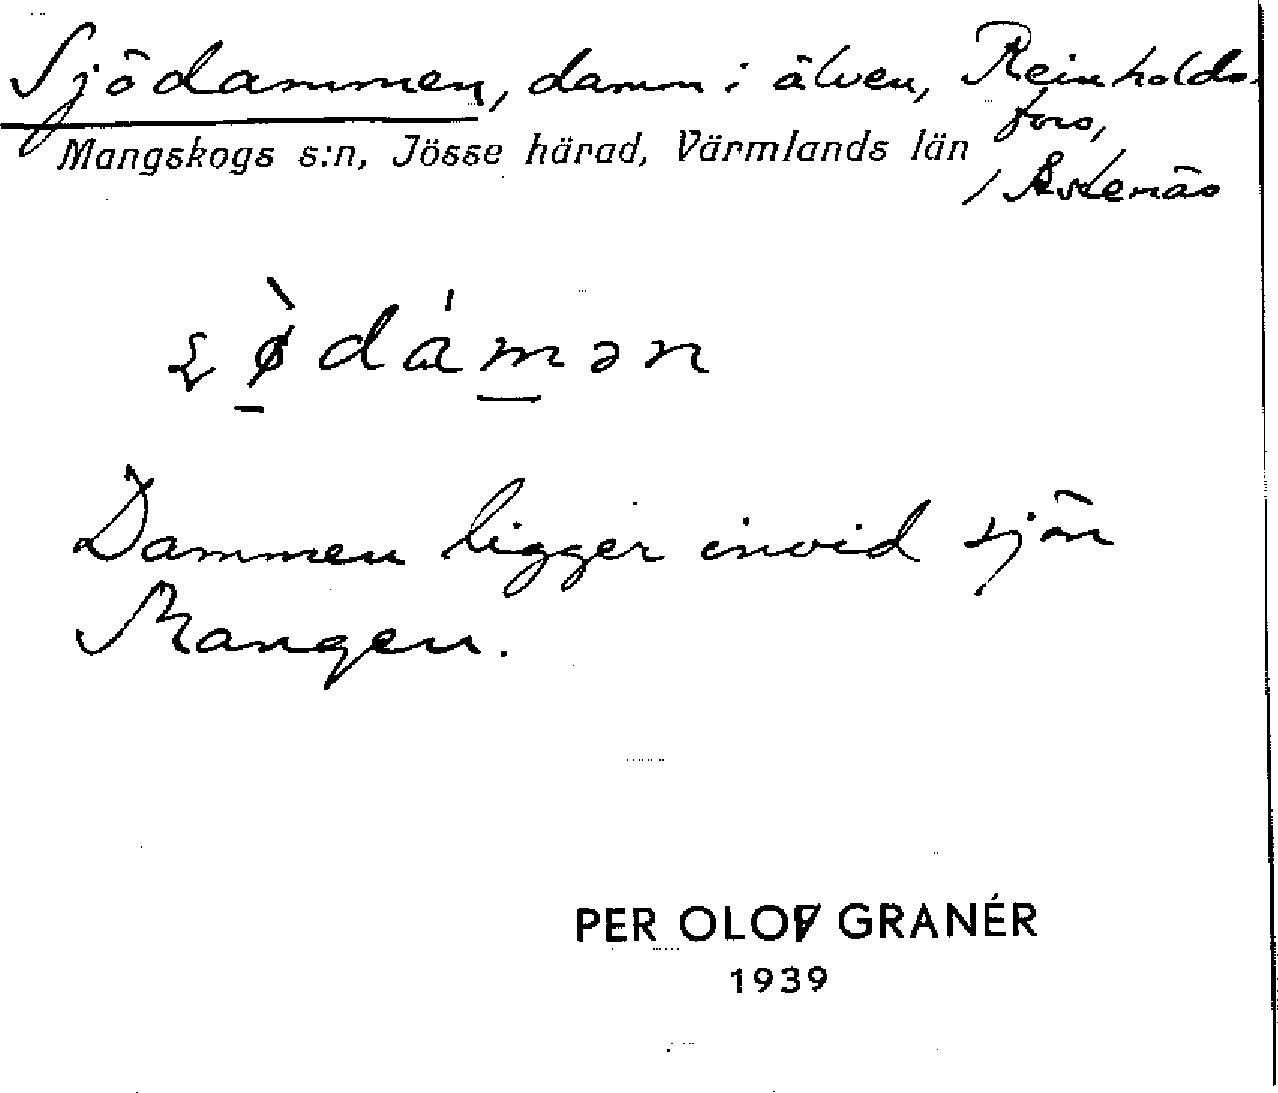 Sjödammen, damm i älven, Reinholds-
fors,
Mangskogs s:n, Jösse härad, Värmlands län
/ Askenäs
Dammen ligger invid sjön
Mangen.
PER OLOF GRANÉR
1939